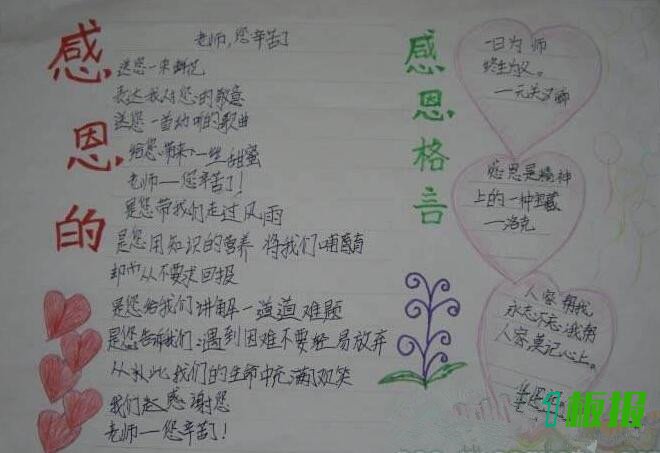 感恩的
老师,您辛苦了
送您一束鲜花
表达我对您的敬意
送您一首动听的歌曲
给您带来一丝甜蜜
老师—您辛苦了!
是您带我们走过风雨
是您用知识的营养 将我们哺育
却从不要求回报
是您给我们讲解一道道难题
是您告诉我们:遇到困难不要轻易放弃
从此我们的生命中充满欢笑
我们 感谢您
老师—您辛苦了!
感恩格言
一日为师
终生为父。
—元关汉卿
感恩是精神
上的一种宝藏
—洛克
人家帮我
永志不忘;我帮
人家莫记心上。
板报